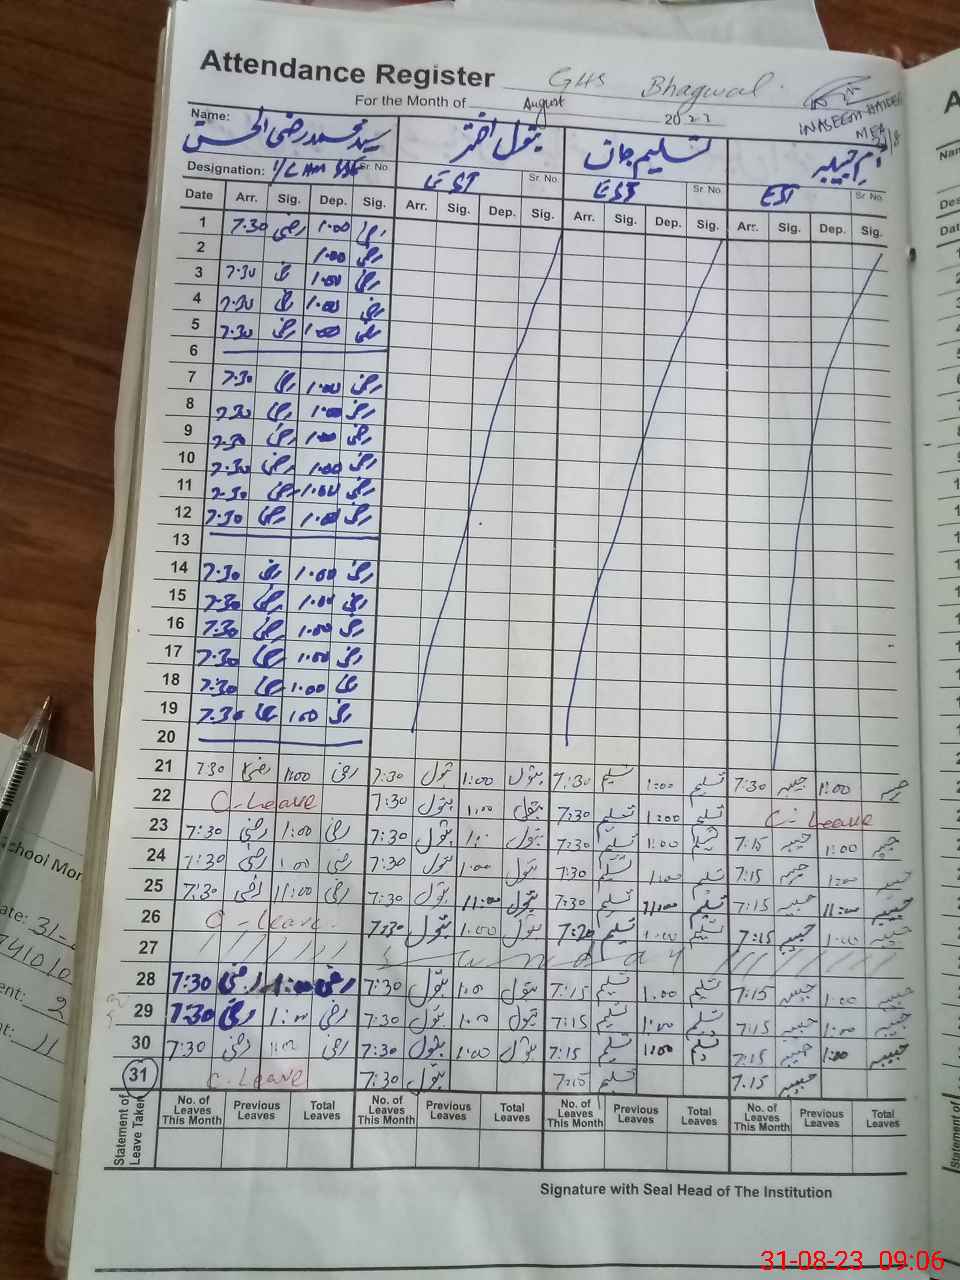 Attendance Register GHS Bhagwal
For the Month of August 2023
Name: سید محمد رضی الحسن بتول اختر تسلیم جان ام حبیبہ
Designation: I/C HM SSE Sr. No. EST Sr. No. EST Sr. No. EST Sr. No.
Date Arr. Sig. Dep. Sig. Arr. Sig. Dep. Sig. Arr. Sig. Dep. Sig. Arr. Sig. Dep. Sig.
1 7:30 رضی 1:00 رضی
2 1:00 رضی
3 7:30 رضی 1:00 رضی
4 7:30 رضی 1:00 رضی
5 7:30 رضی 1:00
6
7 7:30 رضی 1:00 رضی
8 7:30 رضی 1:00 رضی
9 7:30 رضی 1:00 رضی
10 7:30 رضی 1:00 رضی
11 7:30 رضی 1:00 رضی
12 7:30 رضی 1:00 رضی
13
14 7:30 رضی 1:00 رضی
15 7:30 رضی 1:00 رضی
16 7:30 رضی 1:00 رضی
17 7:30 رضی 1:00 رضی
18 7:30 رضی 1:00 رضی
19 7:30 رضی 1:00 رضی
20
21 7:30 رضی 1:00 رضی 7:30 بتول 1:00 بتول 7:30 تسلیم 1:00 تسلیم 7:30 حبیبہ 1:00 حبیبہ
22 C-Leave 7:30 بتول 1:00 بتول 7:30 تسلیم 1:00 تسلیم C-Leave
23 7:30 رضی 1:00 رضی 7:30 بتول 1: بتول 7:30 تسلیم 1:00 تسلیم 7:15 حبیبہ 1:00 حبیبہ
24 7:30 رضی 1:00 رضی 7:30 بتول 1:00 بتول 7:30 تسلیم 1:00 تسلیم 7:15 حبیبہ 1:00 حبیبہ
25 7:30 رضی 11:00 رضی 7:30 بتول 11:00 بتول 7:30 تسلیم 11:00 تسلیم 7:15 حبیبہ 11:00 حبیبہ
26 C-Leave. 7:30 بتول 1:00 بتول 7:30 تسلیم 1:00 تسلیم 7:15 حبیبہ 1:00 حبیبہ
27 Sunday
28 7:30 رضی 1:00 رضی 7:30 بتول 1:00 بتول 7:15 تسلیم 1:00 تسلیم 7:15 حبیبہ 1:00 حبیبہ
29 7:30 رضی 1:00 رضی 7:30 بتول 1:00 بتول 7:15 تسلیم 1:00 تسلیم 7:15 حبیبہ 1:00 حبیبہ
30 7:30 رضی 1:00 رضی 7:30 بتول 1:00 بتول 7:15 تسلیم 1:00 تسلیم 7:15 حبیبہ 1:00 حبیبہ
31 C-Leave 7:30 بتول 7:15 تسلیم 7:15 حبیبہ
Statement of Leave Taken
No. of Leaves This Month Previous Leaves Total Leaves No. of Leaves This Month Previous Leaves Total Leaves No. of Leaves This Month Previous Leaves Total Leaves No. of Leaves This Month Previous Leaves Total Leaves
Signature with Seal Head of The Institution
31-08-23 09:06